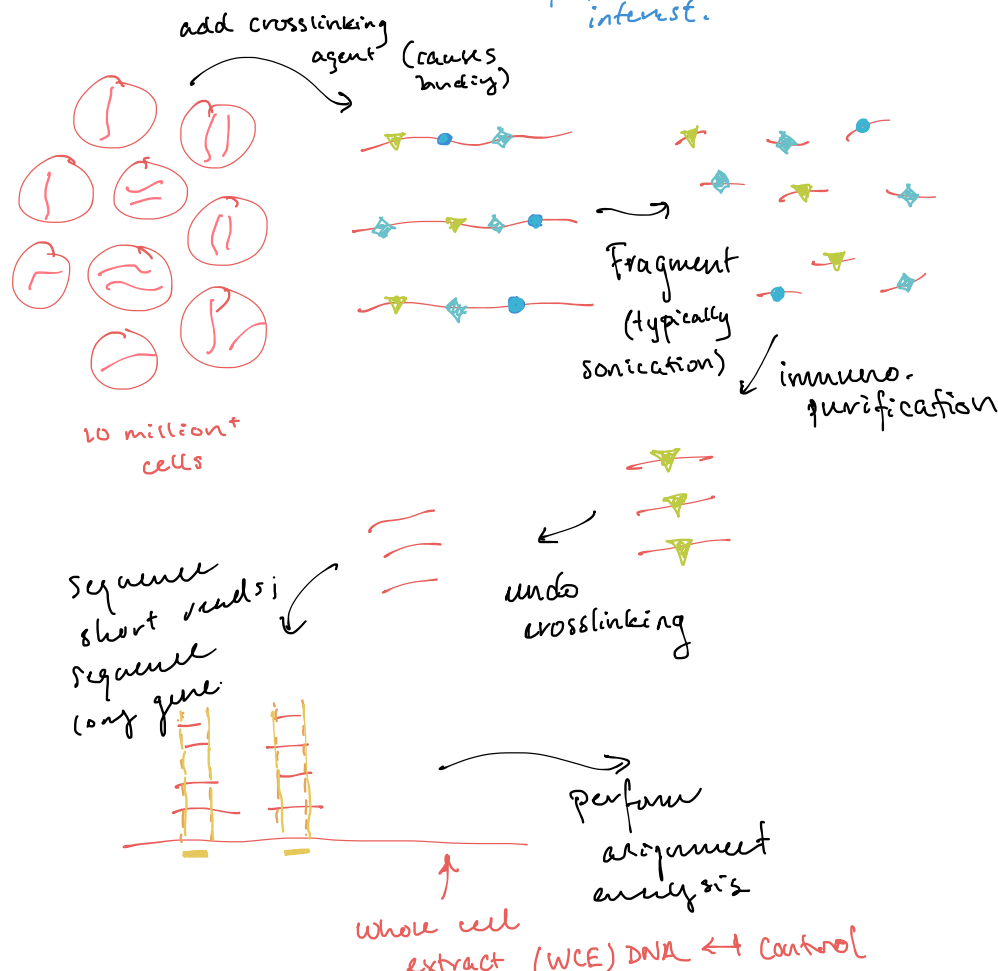 interest.
add crosslinking
agent (causes
binding)
Fragment
(typically
sonication)
immuno-
purification
10 million+
cells
undo
crosslinking
sequence
short reads;
sequence
long gene.
perform
alignment
analysis
whole cell
extract (WCE) DNA ↔ control